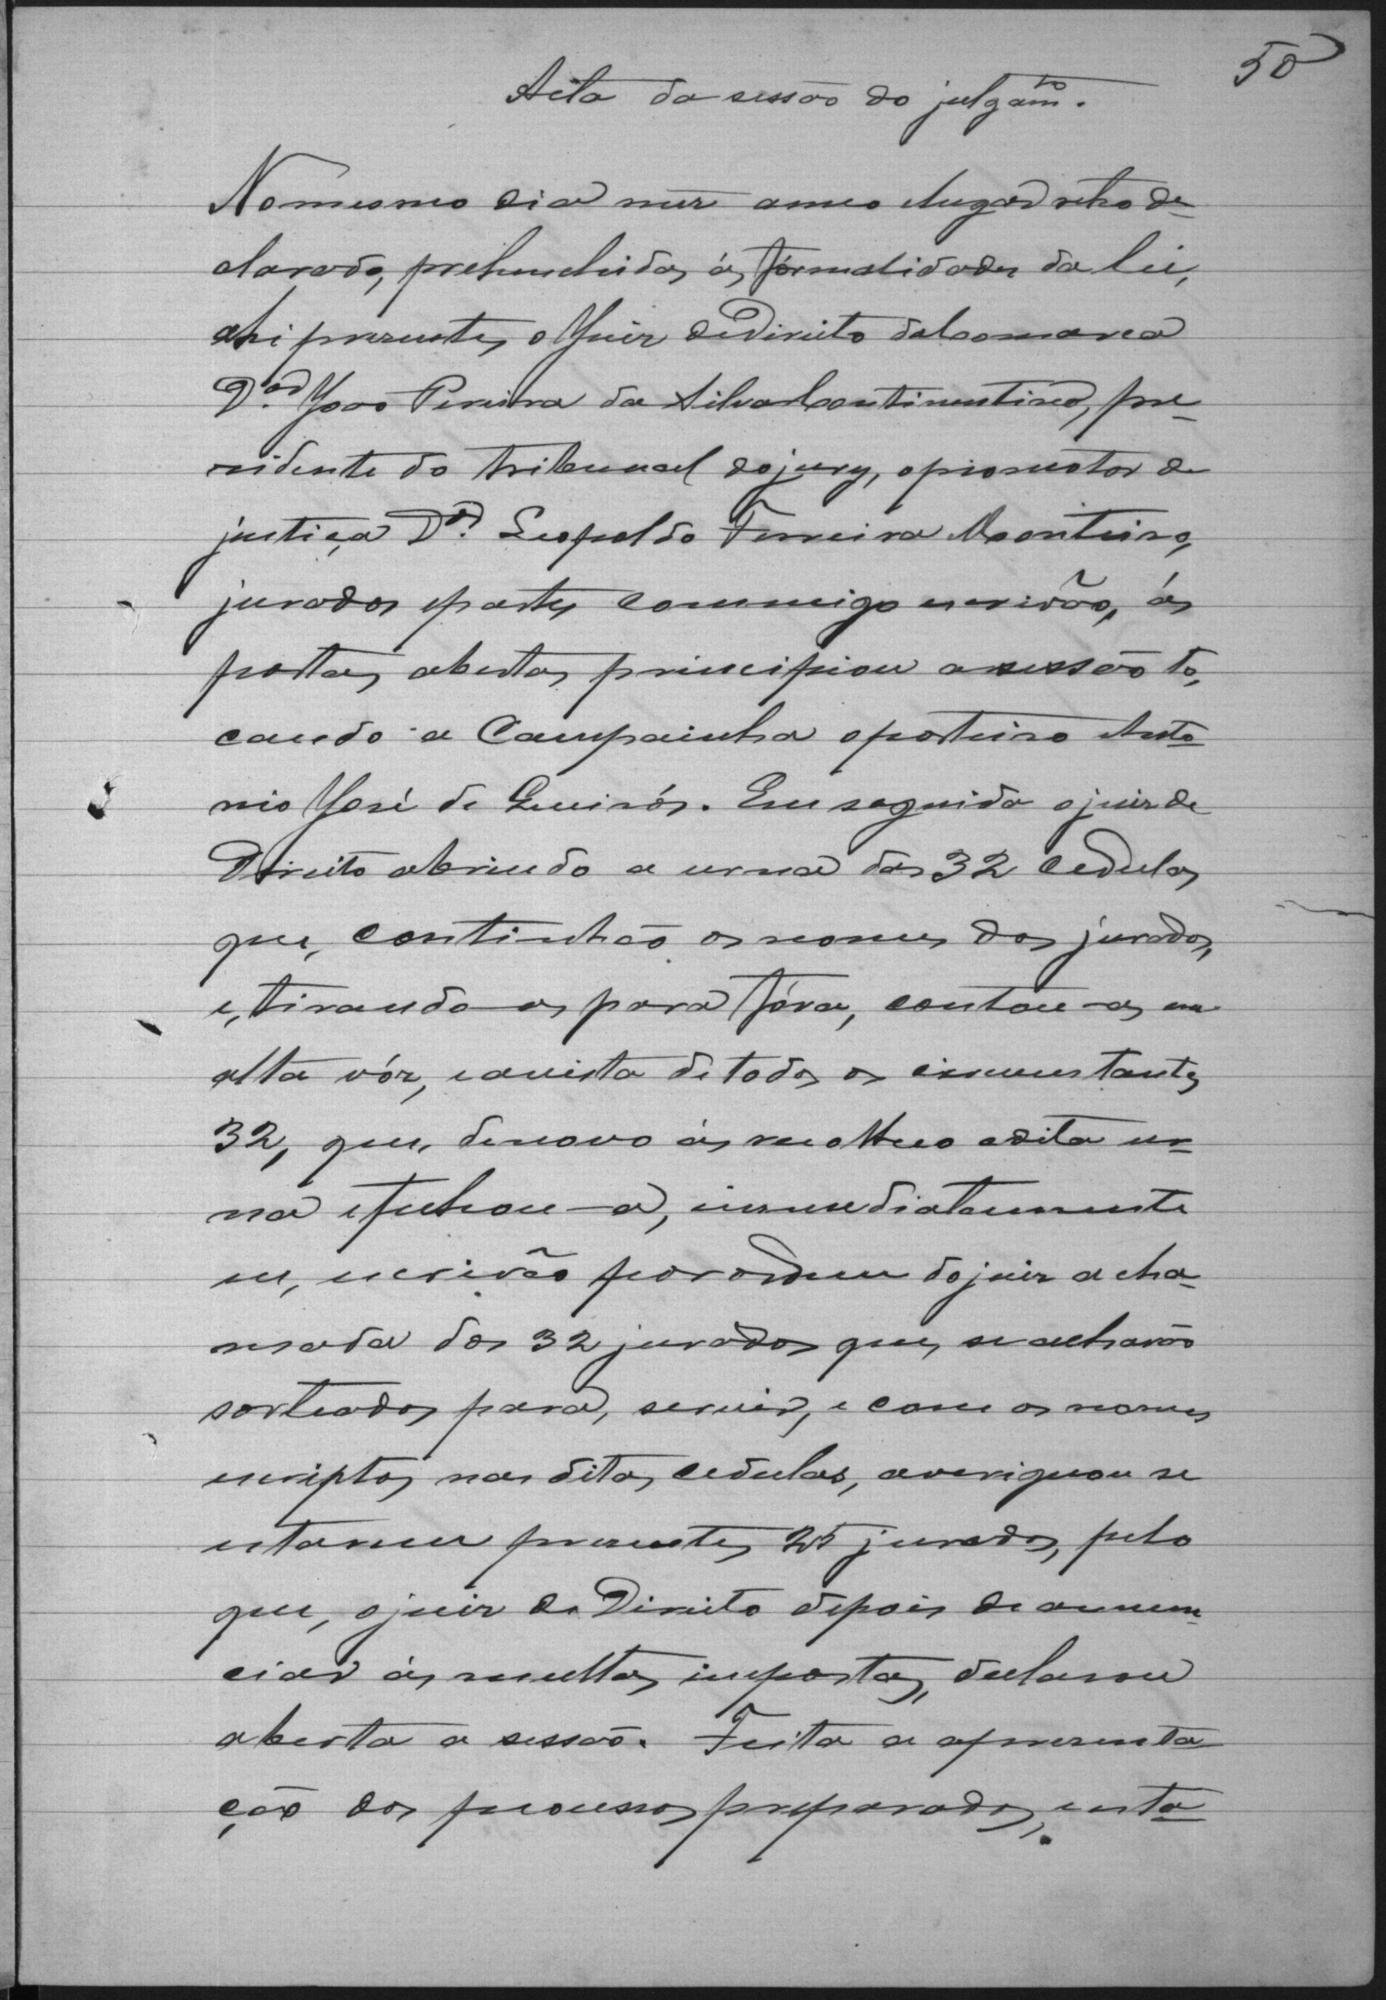 50
Acta da sessão do julgam.to
No mesmo dia mez anno e lugar retro de-
clarado, prehenchidas ás formalidades da lei,
ahi presentes, o Juiz de Direito da Comarca
D.or João Pereira da Silva Continentino, pre-
sidente do tribunal do jury, o promotor de
justiça D.or Leopoldo Ferreira Monteiro,
jurados e partes commigo escrivão, ás
portas abertas, principiou a sessão to-
cando a Campainha o porteiro Anto-
nio José de Queirós. Em seguida o juiz de
Direito abrindo a urna das 32 cedulas
que, continhão os nomes dos jurados,
e, tirando-as para fóra, contou-as em
alta vóz, e a vista de todos os circunstantes
32, que, de novo ás recolheo a dita ur-
na e fechou-a, immediatamente
eu, escrivão por ordem do juiz a cha-
mada dos 32 jurados que, se acharão
sorteados para, servir, e com os nomes
escriptos nas ditas cedulas, averiguou se
estarem presentes 25 jurados, pelo
que, o juiz de Direito depois de annun-
ciar ás multas impostas, declarou
aberta a sessão. Feita a apresenta-
ção dos processos preparados, esta-